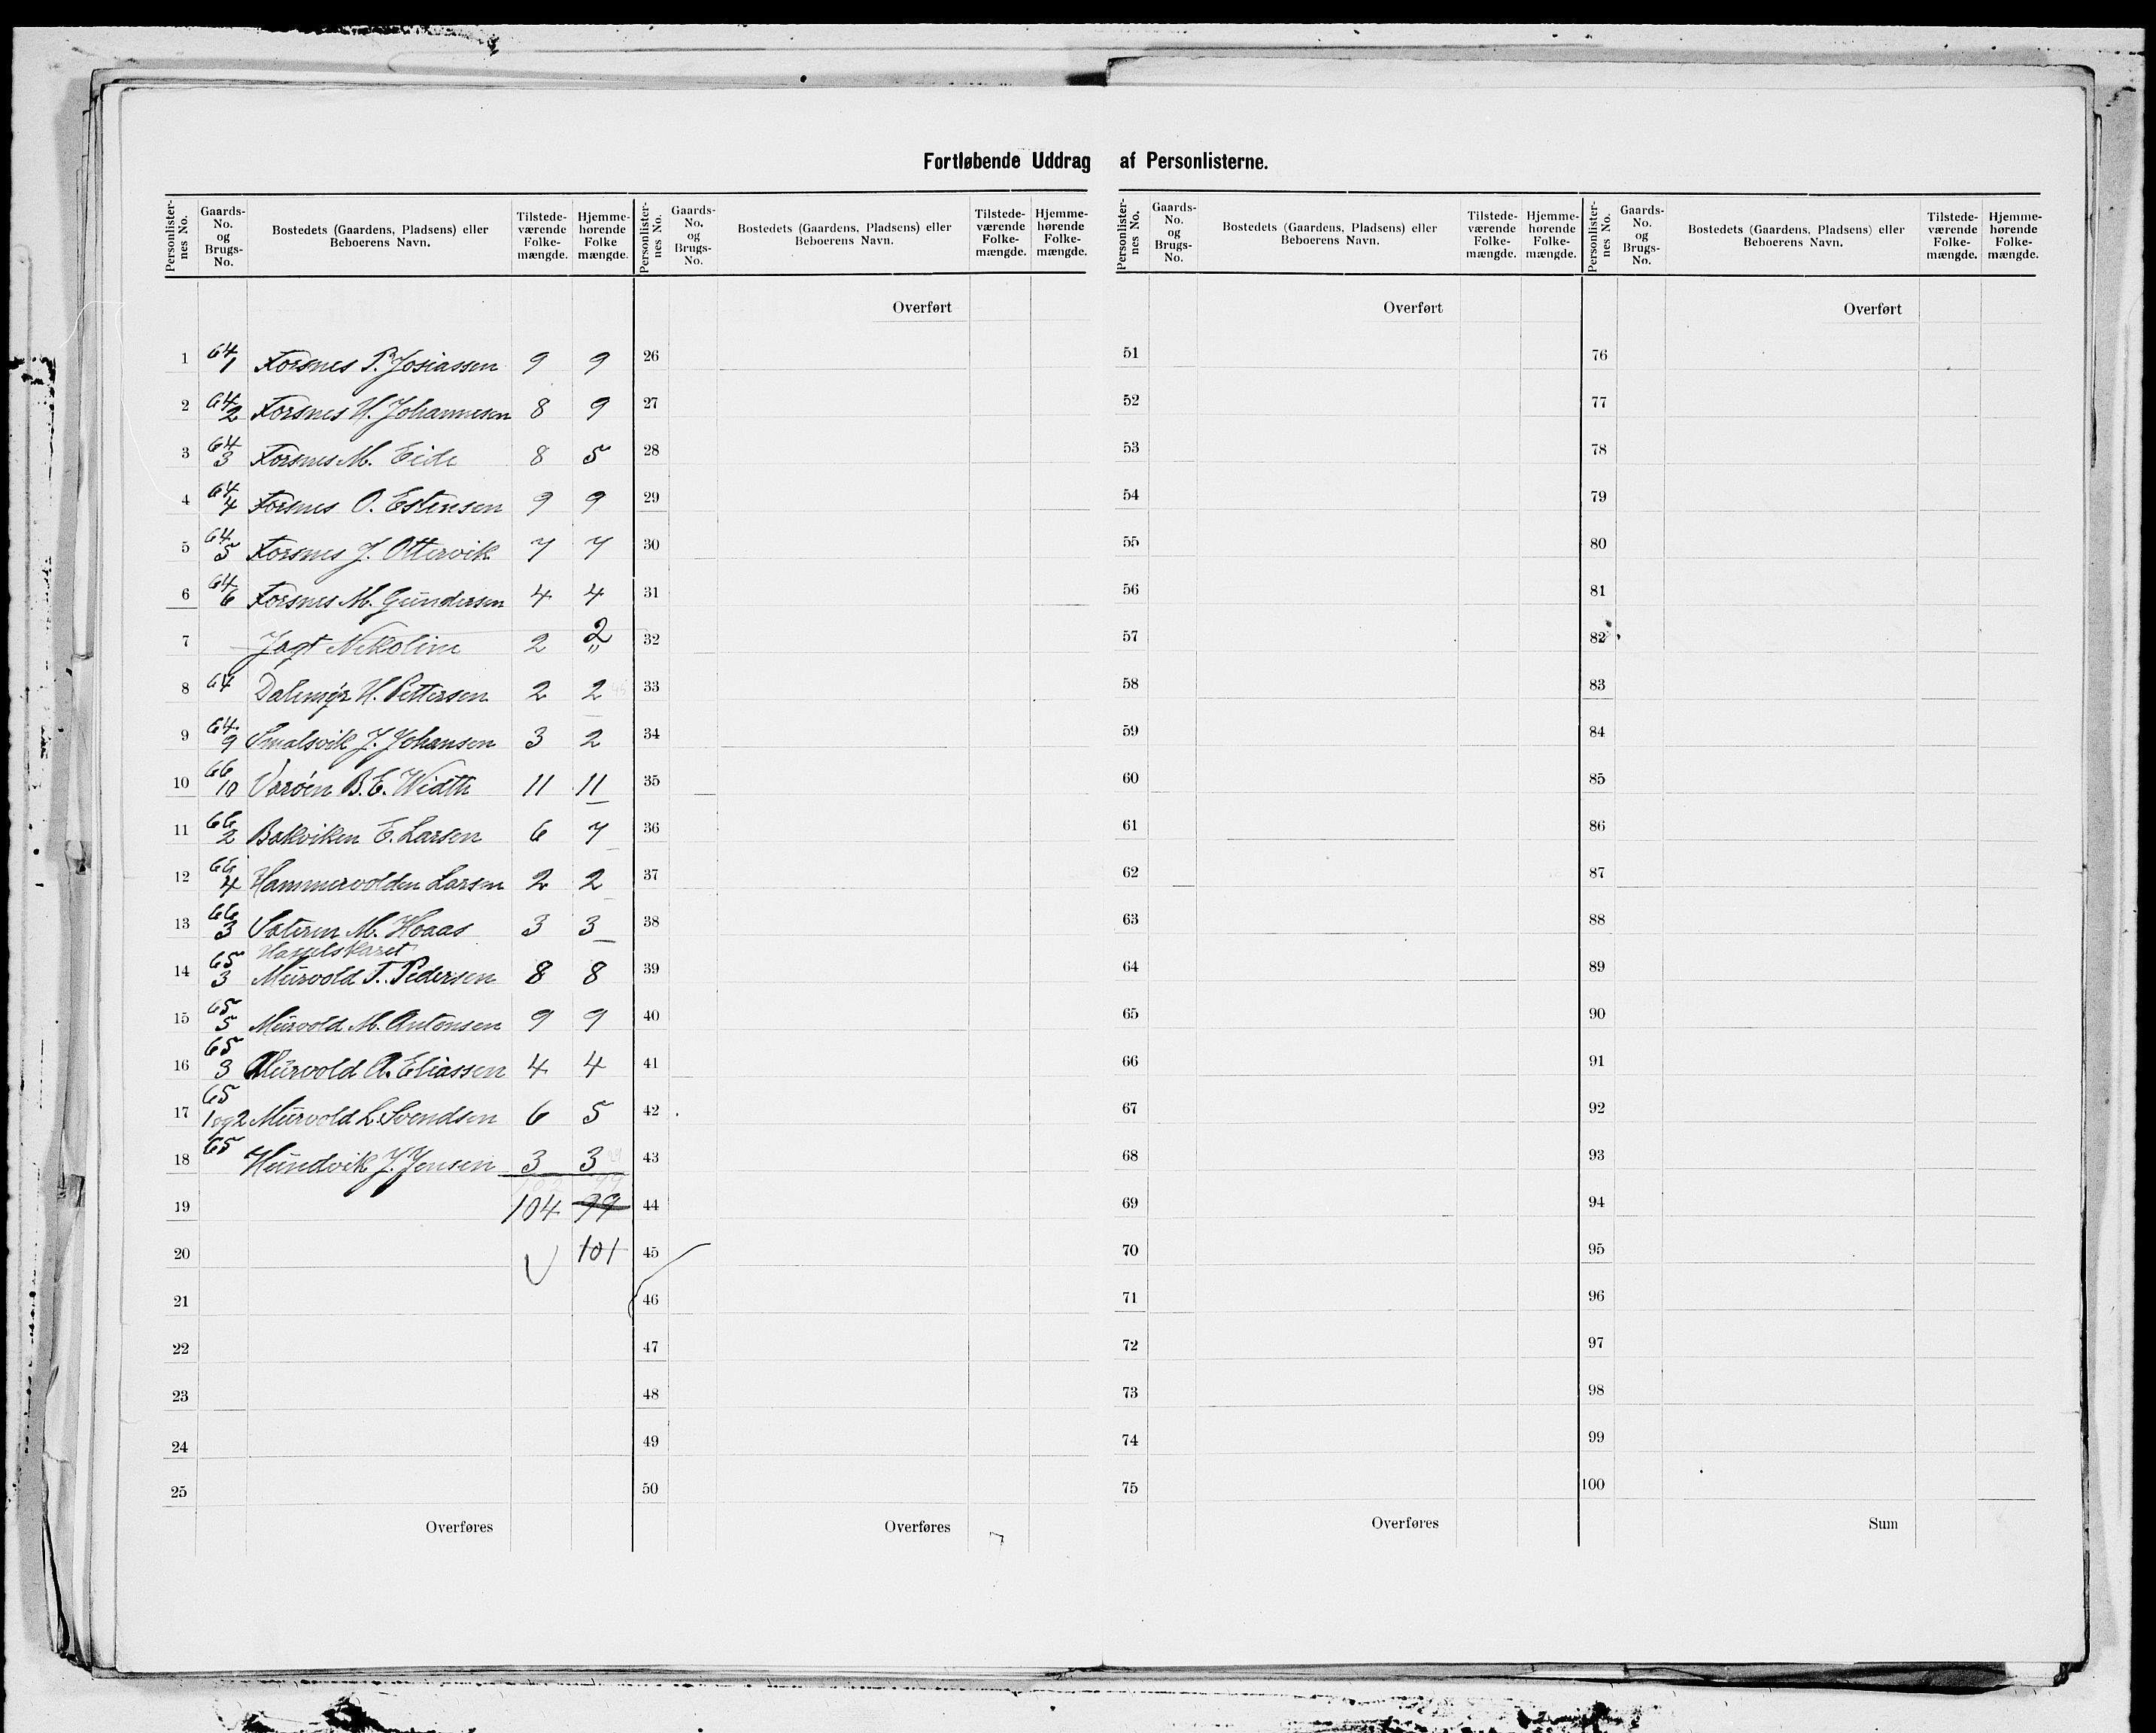 Fortløbende Uddrag af Personlisterne.
Personlister-nes No. Gaards-No. og Brugs-No. Bostedets (Gaardens, Pladsens) eller Beboerens Navn. Tilstede-værende Folke-mængde. Hjemme-hørende Folke mængde.
Personlister-nes No. Gaards-No. og Brugs-No. Bostedets (Gaardens, Pladsens) eller Beboerens Navn. Tilstede-værende Folke-mængde. Hjemme-hørende Folke-mængde.
Personlister-nes No. Gaards-No. og Brugs-No. Bostedets (Gaardens, Pladsens) eller Beboerens Navn. Tilstede-værende Folke-mængde. Hjemme-hørende Folke-mængde.
Personlister-nes No. Gaards-No. og Brugs-No. Bostedets (Gaardens, Pladsens) eller Beboerens Navn. Tilstede-værende Folke-mængde. Hjemme-hørende Folke-mængde.
Overført Overført Overført
1 64/1 Forsnes P. Josiassen 9 9 26 51 76
2 64/2 Forsnes H. Johannesen 8 9 27 52 77
3 64/3 Forsnes M. Eide 8 5 28 53 78
4 64/4 Forsnes O. Estensen 9 9 29 54 79
5 64/5 Forsnes J. Ottervik 7 7 30 55 80
6 64/6 Forsnes M. Gundersen 4 4 31 56 81
7 Jagt Nikoline 2 2 " 32 57 82
8 64 Dalemyr H. Pettersen 2 2 33 58 83
9 64/9 Smalsvik J. Johansen 3 2 34 59 84
10 66/10 Varöen B. E. Width 11 11 35 60 85
11 66/2 Bakviken E. Larsen 6 7 36 61 86
12 66/4 Hammervolden Larsen 2 2 37 62 87
13 66/3 Sæteren M. Hoaas 3 3 38 63 88
Hasselskaret
14 65/3 Murvold T. Pedersen 8 8 39 64 89
15 65/5 Murvold M. Antonsen 9 9 40 65 90
16 65/3 Murvold A. Eliassen 4 4 41 66 91
17 65/1 og 2 Murvold L. Svendsen 6 5 42 67 92
18 65 Hundvik J. Jensen 3 3 43 68 93
19 104 99 44 69 94
20 101 45 70 95
21 46 71 96
22 47 72 97
23 48 73 98
24 49 74 99
25 50 75 100
Overføres Overføres Overføres Sum